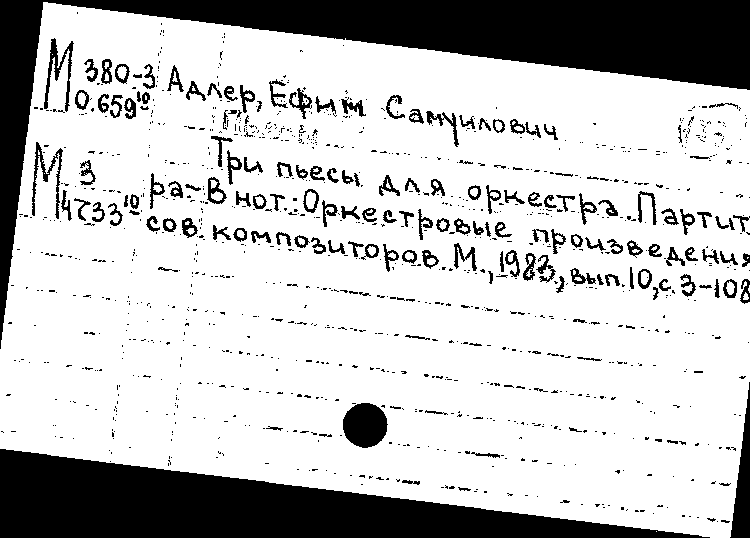 М 380-3 Адлер, Ефим Самуилович
0.659¹⁰ Пьесы
Три пьесы для оркестра. Партит
М 3 ра~В нот.: Оркестровые произведения
14733¹⁰ сов. композиторов. М., 1983, вып. 10, с. 3-108